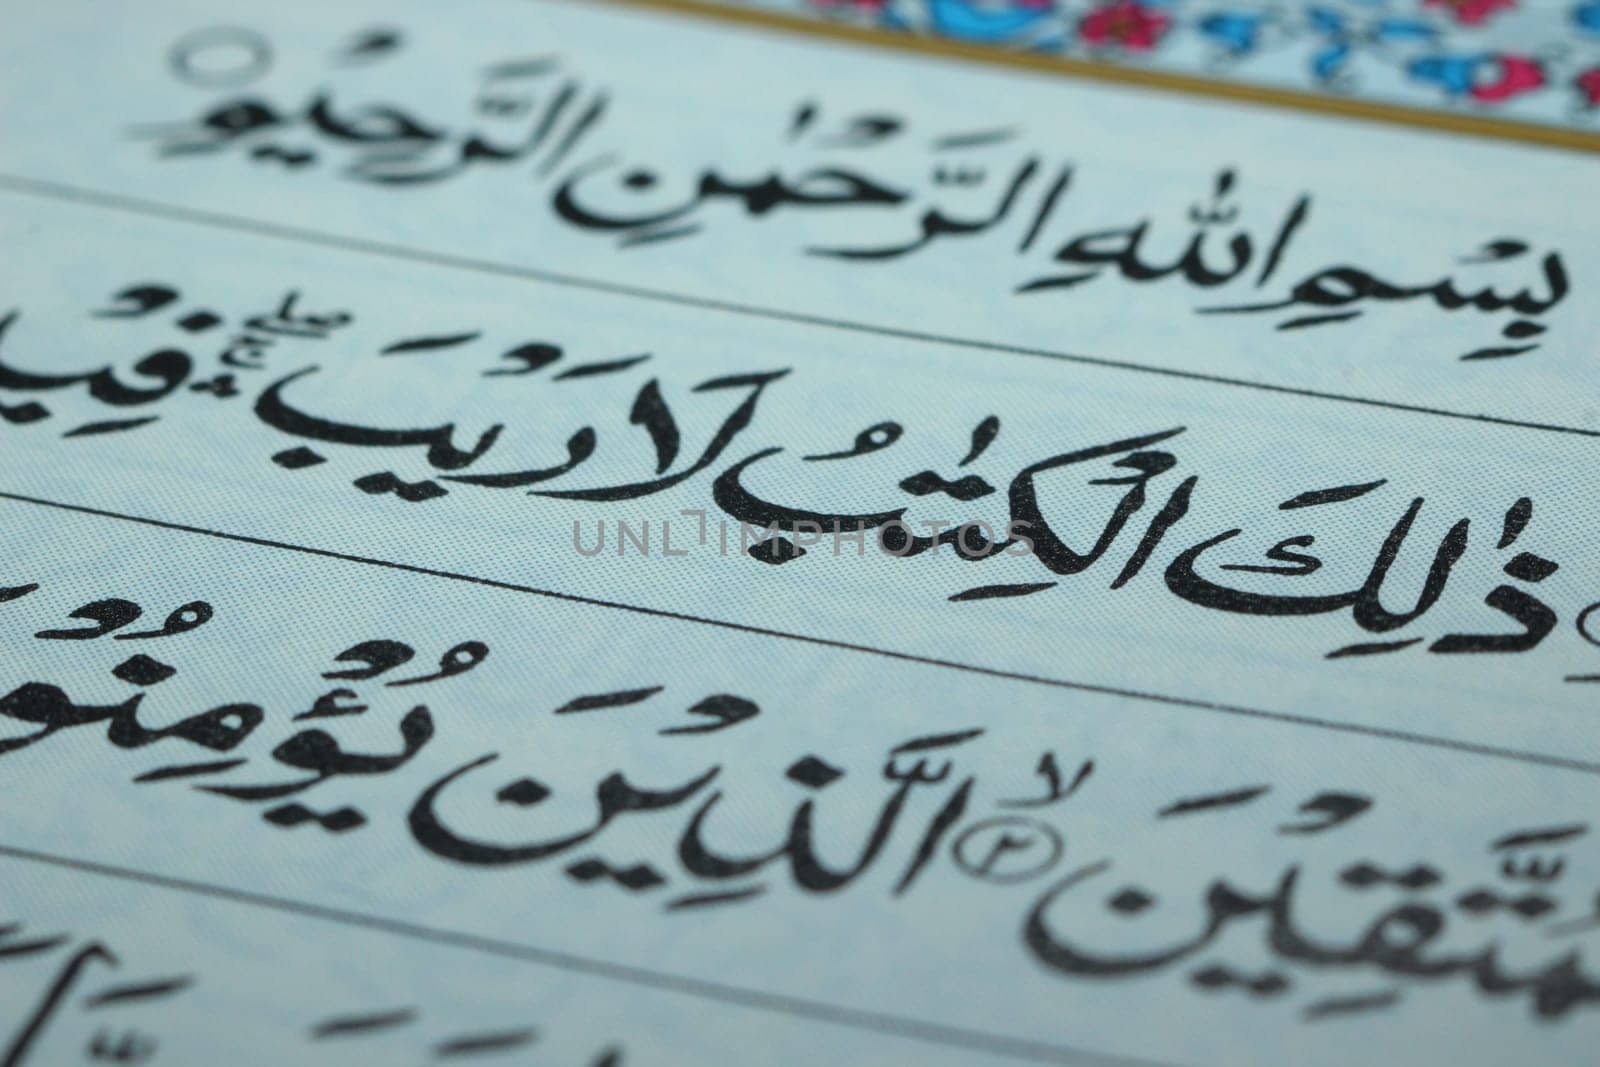 بِسْمِ اللهِ الرَّحْمٰنِ الرَّحِيْمِ
ذٰلِكَ الْكِتٰبُ لَا رَيْبَ ۛۖۚ فِيْهِ
لِّلْمُتَّقِيْنَ ۙ﴿۲﴾ الَّذِيْنَ يُؤْمِنُوْنَ
UNLIMPHOTOS